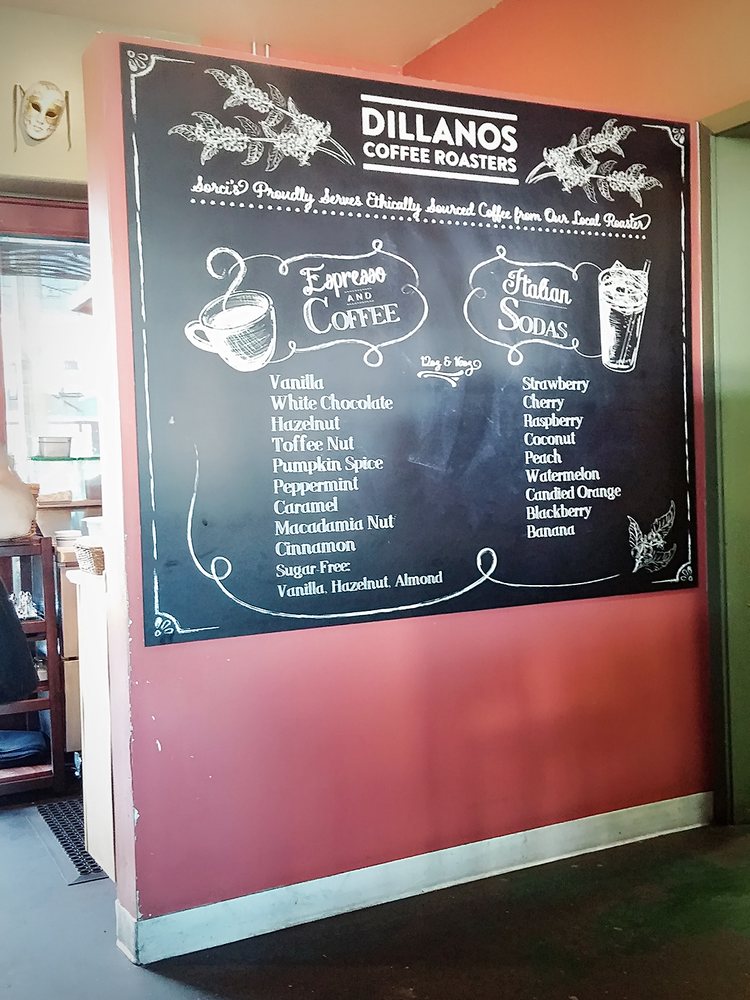 DILLANOS
COFFEE ROASTERS
Sorci's Proudly Serves Ethically Sourced Coffee from Our Local Roaster
Espresso
AND
COFFEE
Italian
SODAS
12oz & 16oz
Vanilla
White Chocolate
Hazelnut
Toffee Nut
Pumpkin Spice
Peppermint
Caramel
Macadamia Nut
Cinnamon
Sugar-Free:
Vanilla, Hazelnut, Almond
Strawberry
Cherry
Raspberry
Coconut
Peach
Watermelon
Candied Orange
Blackberry
Banana